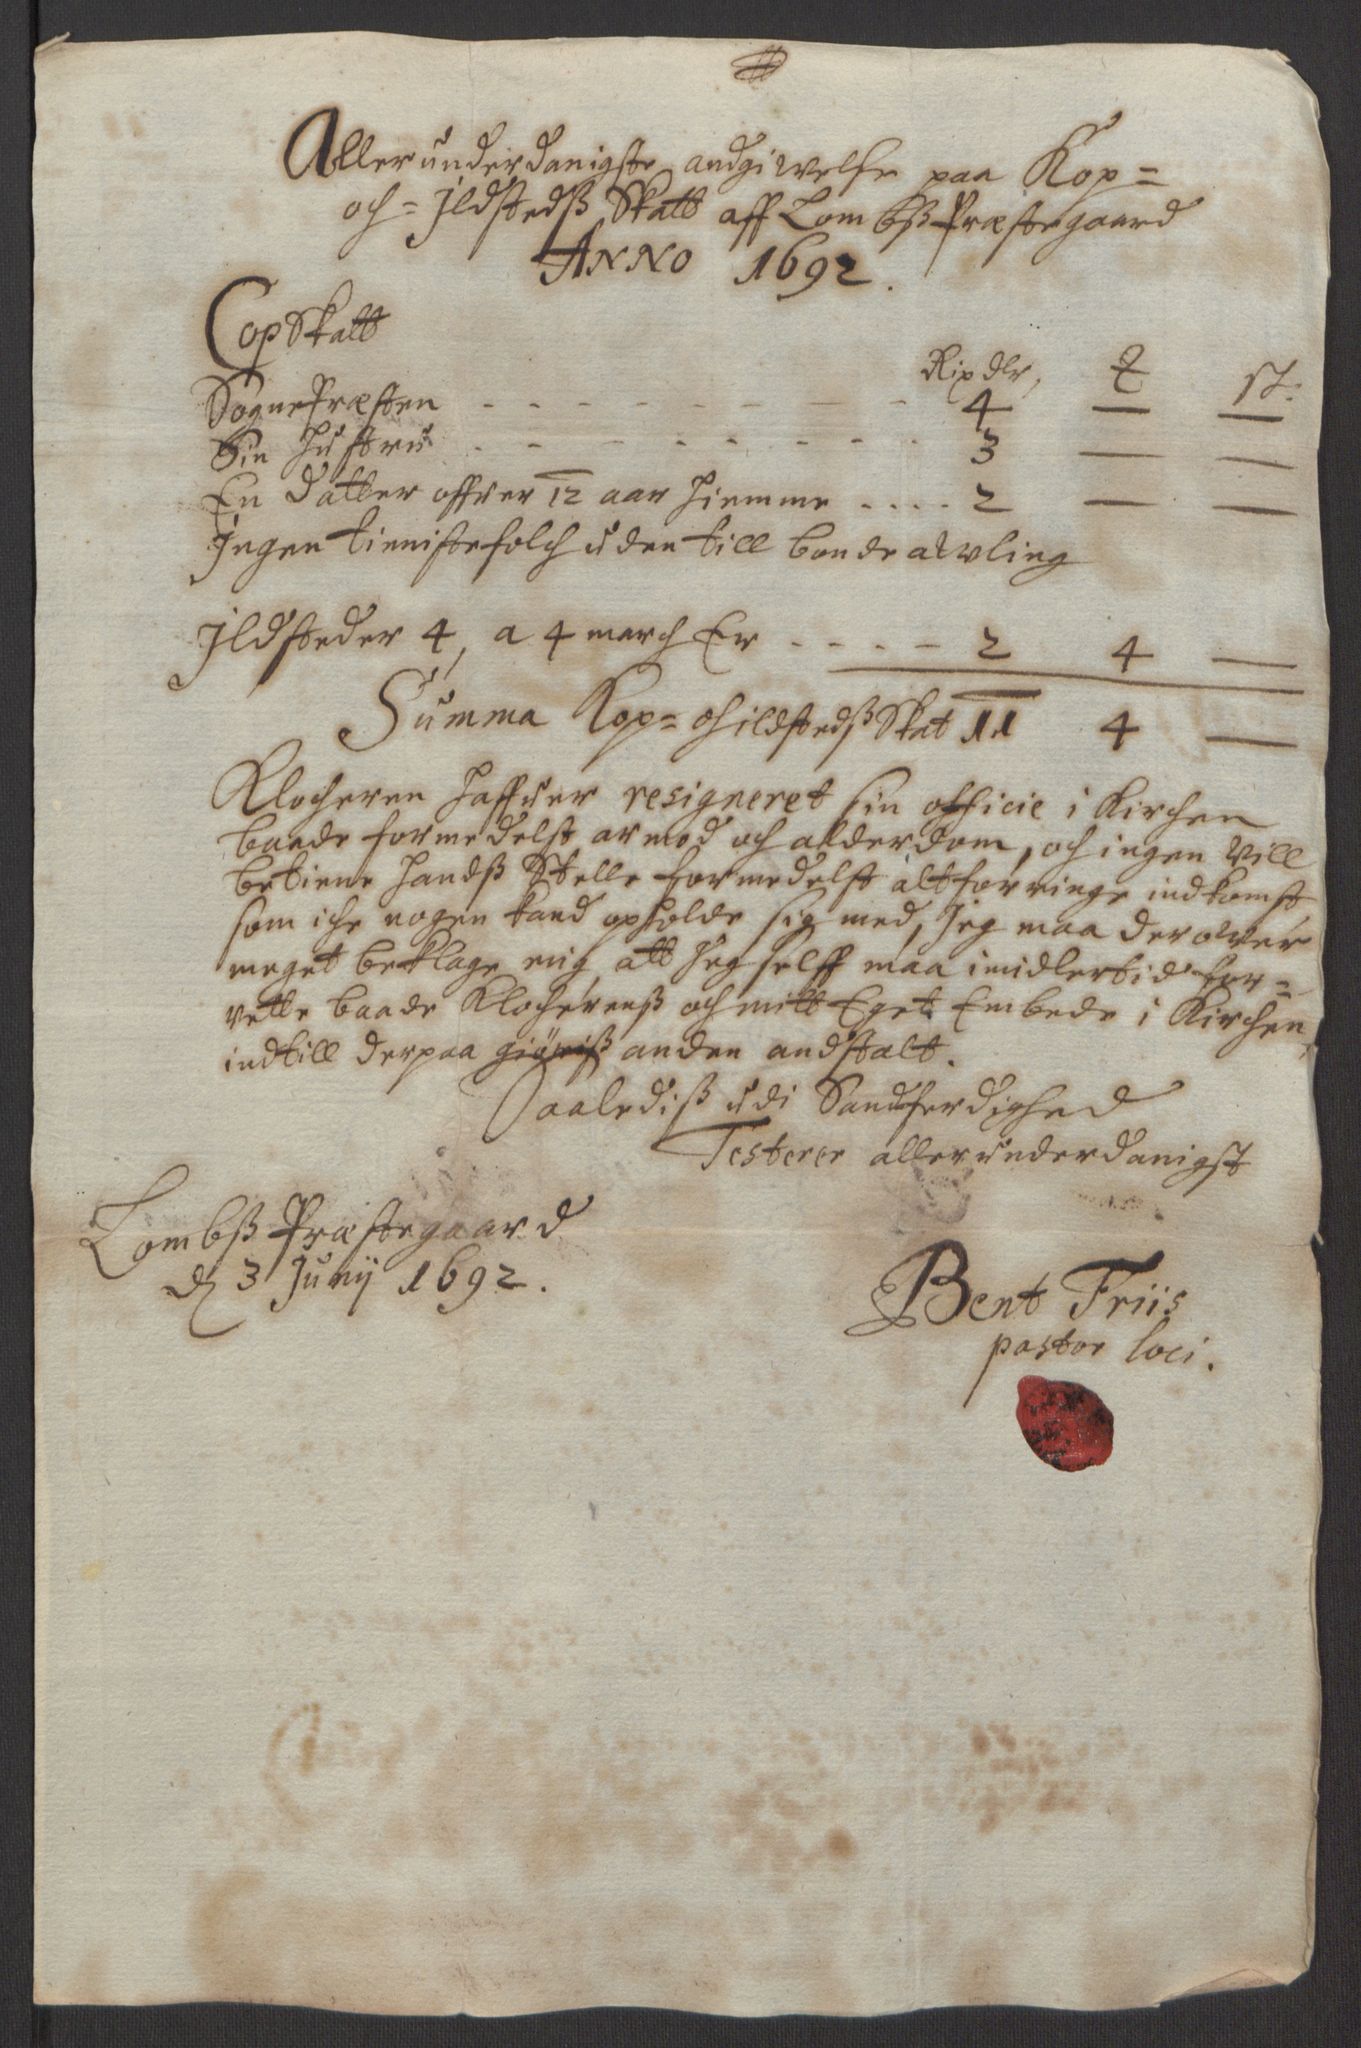 Allerunderdanigste andgiwelse paa Kop=
och= Jldstedß Skatt aff Lombß Præstegaard
ANNO 1692.
CopSkatt
Rixdlr,
SognePræsten - - - - - - - - 4 — —
Sin Hustru - - - - - - - - 3 — —
En datter offver 12 aar hiemme .... 2 — —
Ingen tienistefolch uden till bonde awling
Jldsteder 4, a 4 march Er - - - - 2 4 —
Summa Kop= och ildstedßSkat 11 4 —
Klocheren haffuer resigneret sin officie i Kirchen
baade formedelst armod och alderdom, och ingen vill
betiene handß Stelle formedelst altforringe indkomst
som iche nogen kand opholde sig med, Jeg maa derower
meget beklage mig att Jeg selff maa imidlertid for=
rette baade Klocherenß och mitt Eget Embede i Kirchen,
indtill derpaa giöriß anden andstalt.
Saalediß udi Sandferdighed
Testerer allerunderdanigst
Lombß Præstegaard
d 3 Junij 1692.
Bent Friis
pastor loci.